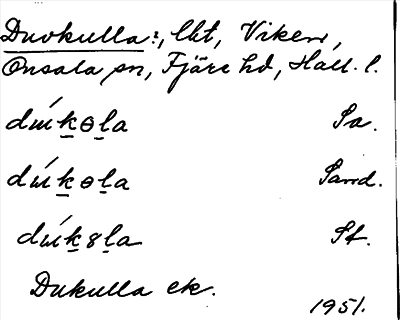 Duvkulla:, lht, Viken,
Onsala sn, Fjäre hd, Hall. l.
dúkɵla Sa.
dúkɵla Sand.
dúk8la St.
Dukulla ek.
1951.